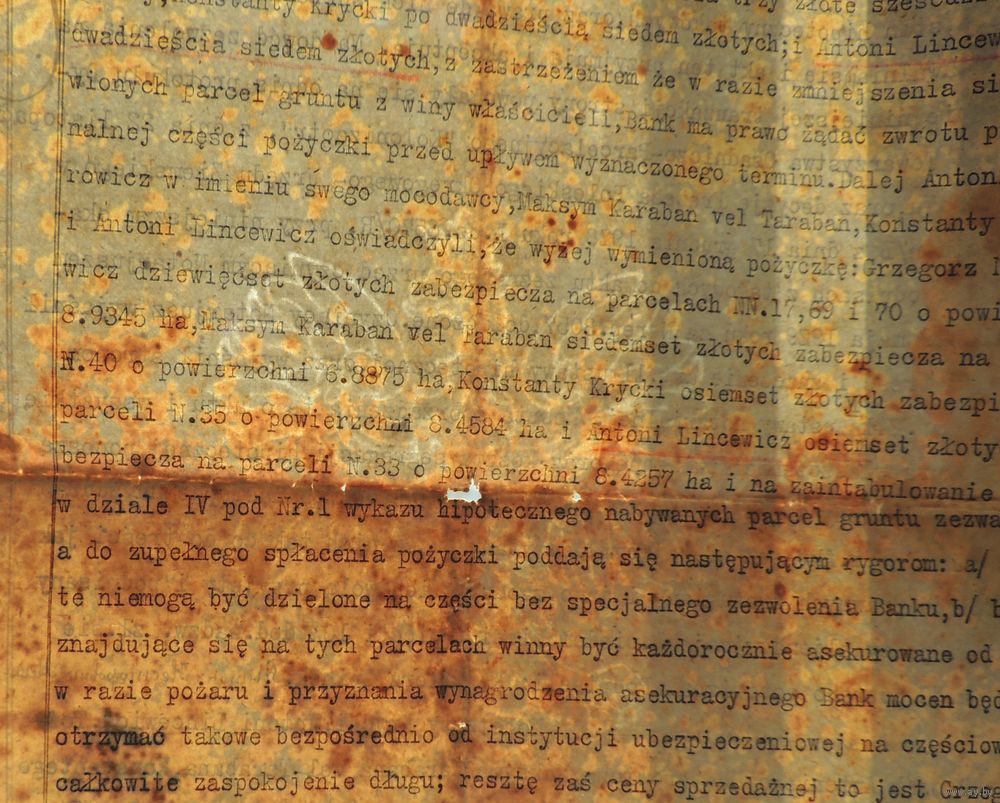 Konstanty Krycki po dwadzieścia siedem złotych;i Antoni Lincew
dwadzieścia siedem złotych,z zastrzeżeniem że w razie zmniejszenia si
wionych parcel gruntu z winy właścicieli,Bank ma prawo żądać zwrotu p
nalnej części pożyczki przed upływem wyznaczonego terminu.Dalej Anton
rowicz w imieniu swego mocodawcy,Maksym Karaban vel Taraban,Konstanty
i Antoni Lincewicz oświadczyli,że wyżej wymienioną pożyczkę:Grzegorz
wicz dziewięćset złotych zabezpiecza na parcelach NN.17,69 i 70 o powi
8.9345 ha,Maksym Karaban vel Taraban siedemset złotych zabezpiecza na
N.40 o powierzchni 6.8875 ha,Konstanty Krycki osiemset złotych zabezpi
parceli N.35 o powierzchni 8.4584 ha i Antoni Lincewicz osiemset złoty
bezpiecza na parceli N.33 o powierzchni 8.4257 ha i na zaintabulowanie
w dziale IV pod Nr.1 wykazu hipotecznego nabywanych parcel gruntu zezwa
a do zupełnego spłacenia pożyczki poddają się następującym rygorom: a/
te niemogą być dzielone na części bez specjalnego zezwolenia Banku,b/
znajdujące się na tych parcelach winny być każdorocznie asekurowane od
w razie pożaru i przyznania wynagrodzenia asekuracyjnego Bank mocen będ
otrzymać takowe bezpośrednio od instytucji ubezpieczeniowej na częściow
całkowite zaspokojenie długu; resztę zaś ceny sprzedażnej to jest
www.ay.by